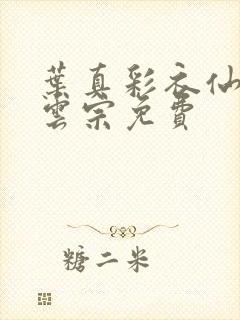 葉真彩衣仙
雲宗免費
糖二米